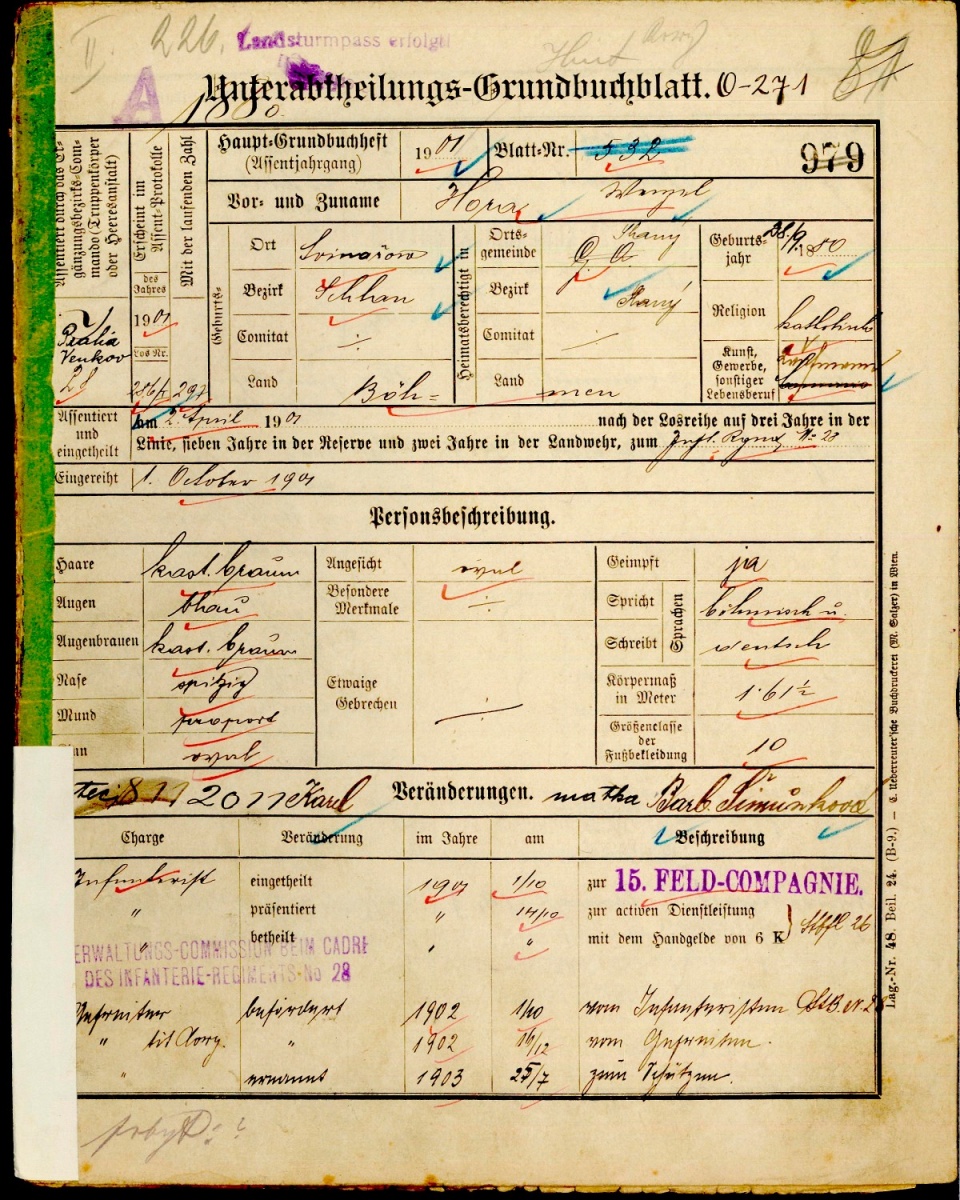 II. 226. Landsturmpass erfolgt
A
Unterabtheilungs-Grundbuchblatt. O-271
1880.
Assentiert durch das Ergänzungsbezirks-Commando (Truppenkörper oder Heeresanstalt)
Praha
Venkov
28
Erscheint im Assent-Protokolle
des Jahres
1901
Los Nr.
286/4
Mit der laufenden Zahl
297
Haupt-Grundbuchheft
(Assentjahrgang)
1901
Blatt-Nr. 532
979
Vor- und Zuname Hora Wenzel
Geburts-
Ort
Bezirk Schlan
Comitat ÷
Land Böh-
Heimatsberechtigt in
Ortsgemeinde
Slaný
Bezirk
Slaný
Comitat ÷
Land men
Geburtsjahr 28/9 1880
Religion katholisch
Kunst, Gewerbe, sonstiger Lebensberuf
Assentiert und eingetheilt
am 2. April 1901 nach der Losreihe auf drei Jahre in der
Linie, sieben Jahre in der Reserve und zwei Jahre in der Landwehr, zum Inft. Rgmt. N: 28
Eingereiht 1. October 1901
Personsbeschreibung.
Haare kast. braun
Augen blau
Augenbrauen kast. braun
Nase spitzig
Mund proport
Kinn oval
Angesicht oval
Besondere Merkmale ÷
Etwaige Gebrechen ÷
Geimpft ja
Spricht
Schreibt
Sprachen
böhmisch u.
deutsch
Körpermaß in Meter 1·61½
Größenclasse der Fußbekleidung 10
Karl Veränderungen. matka Barb. Šimůnková
Charge Veränderung im Jahre am Beschreibung
Infanterist eingetheilt 1901 1/10 zur 15. FELD-COMPAGNIE.
" präsentiert " 14/10 zur activen Dienstleistung
" betheilt " " mit dem Handgelde von 6 K } Stbfl 26
ERWALTUNGS-COMMISSION BEIM CADRE
DES INFANTERIE-REGIMENTS No 28
Gefreiter befördert 1902 1/10 vom Infanteristen
" tit. Corp. " 1902 16/12 vom Gefreiten.
" ernannt 1903 25/7 zum Schützen.
Lag.-Nr. 48. Beil. 24. (B-9.) — C. Ueberreuter'sche Buchdruckerei (M. Salzer) in Wien.